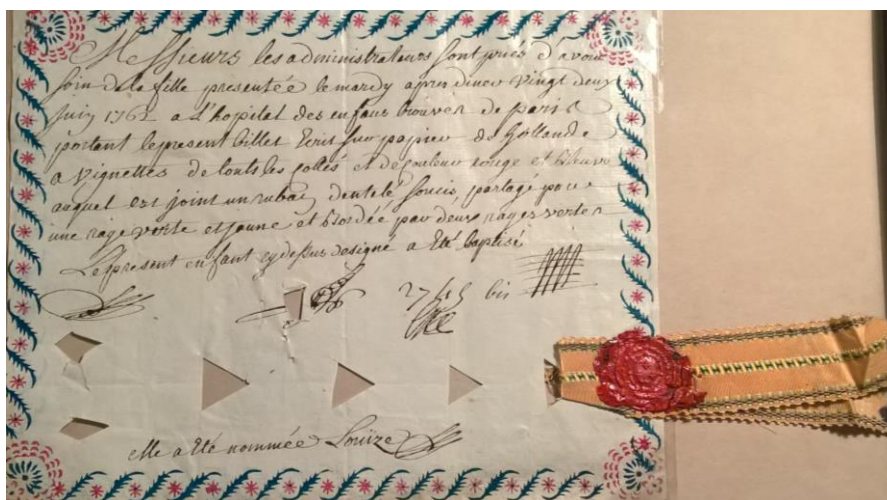 Messieurs les administrateurs sont priés d'avoir
soin de la fille presentée le mardy apres diner vingt deux
juin 1762 a L'hopital des enfans trouvés de paris
portant le present billet Ecrit sur papier de hollande
a vignettes de touts les cottés et de couleur rouge et bleuve
auquel est joint un ruban dentelé soucis, partagé par
une raye verte et jaune et bordée par deux rayes vertes
Le present enfant cy dessus designé a Eté baptisé
bis
elle a Eté nommée Louize